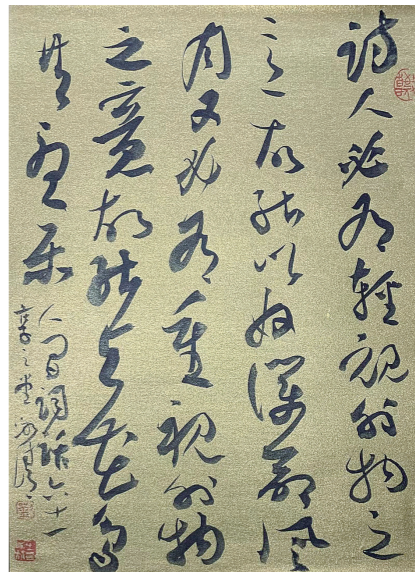 詩人必有輕視外物之
意故能以奴僕命風
月又必有重視外物
之意故能與花鳥
共憂樂
人間詞話六十一